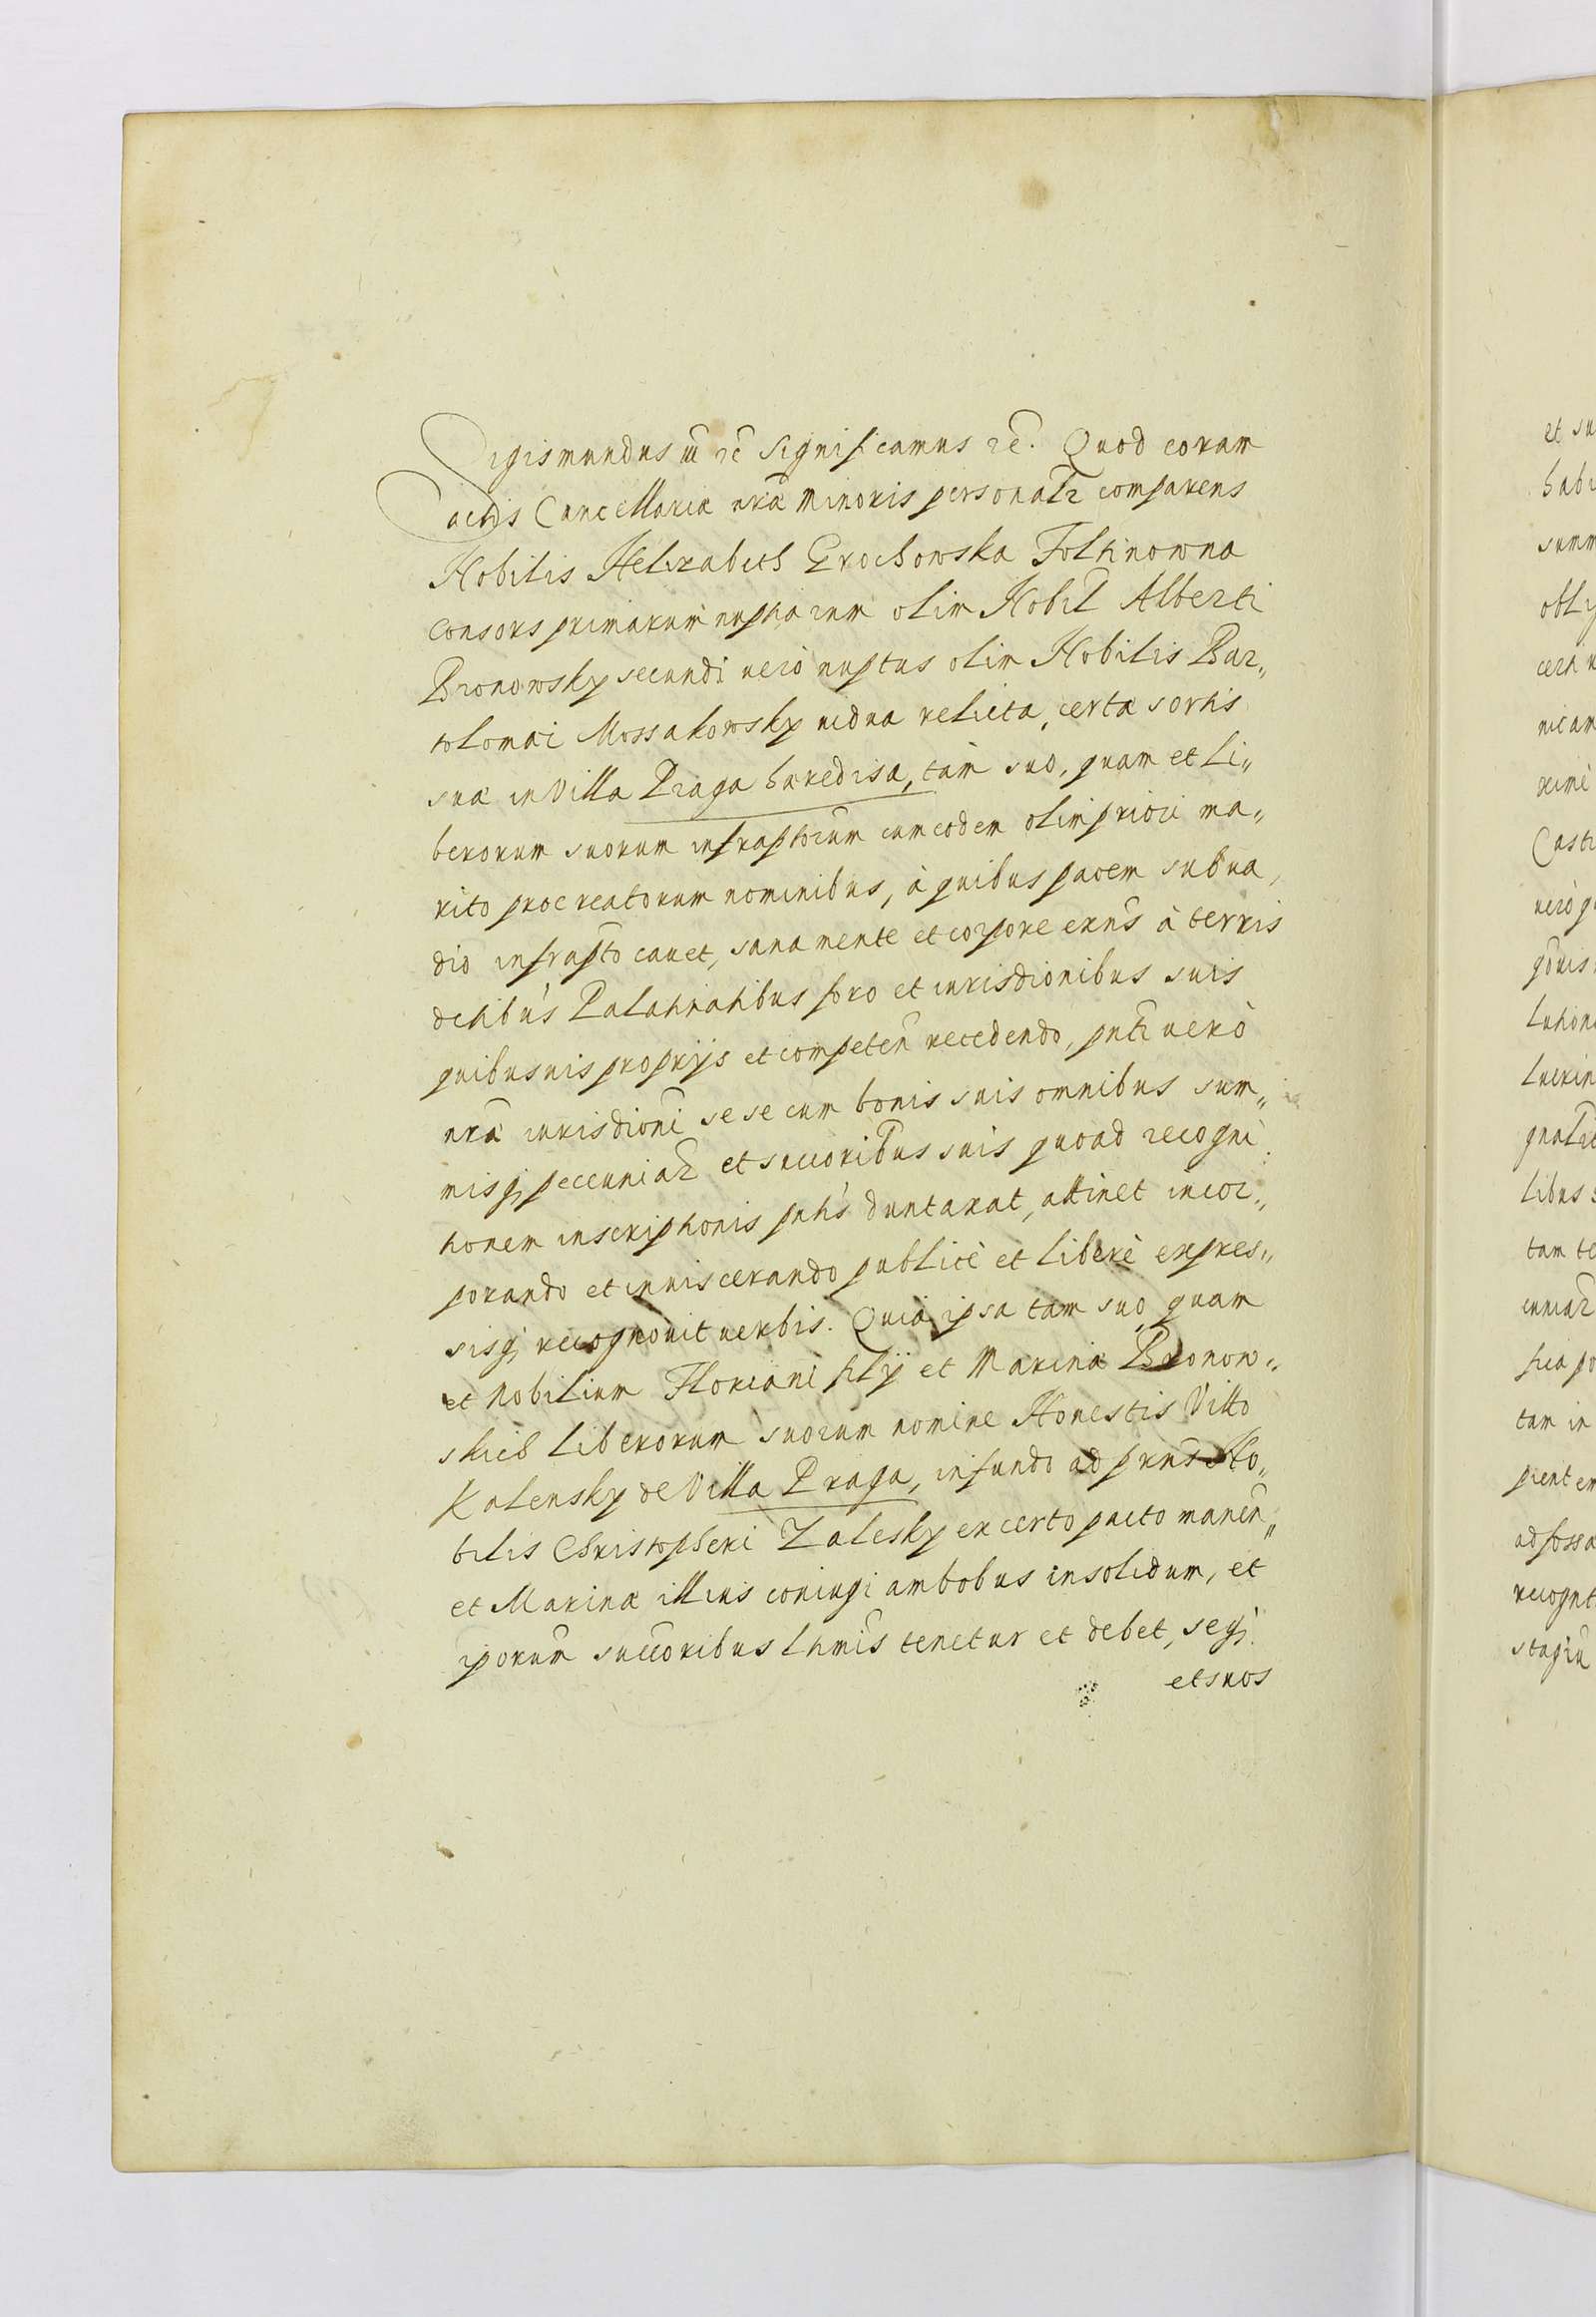 Sigismundus iii rc̃ Significamus rc̃. Quod coram
actis Cancellariæ nrã Minoris personalr comparens
Nobilis Helizabeth Grochowska Foltinowna
consors primarum nuptiarum olim Nobil Alberti
Bronowsky secundi uero nuptus olim Nobilis Bar„
tolomæi Mossakowsky uidua relicta, certæ sortis
suæ in Villa Praga hæredisa, tàm suo, quam et Li„
berorum suorum infraptorum cum eodem olim priori ma„
rito procreatorum nominibus, à quibus pacem sub ua,
dio infrapto cauet, sana mente et corpore exñs à terris
dctibus Palatinatibus foro et iurisdionibus suis
quibusuis proprijs et competeñ recedendo, pnti uerò
nrã iurisdioni se se cum bonis suis omnibus sum„
misq; pecuniar et succoribus suis quoad recogni
tionem inscriptionis pntis duntaxat, attinet incor„
porando et inuiscerando publicè et liberè expres„
sisq; recognouit uerbis. Quia ipsa tam suo, quam
et Nobilium Floriani filij et Marinæ Bronow„
skich liberorum suorum nomine Honestis Vitto
Kalensky de Villa Praga, in fundo ad prns No„
bilis Christopheri Zalesky ex certo pacto maneñ„
et Marinæ illius coniugi ambobus insolidum, et
iporum succoribus Ltimis tenetur et debet, seq;
et suos
et su
habi
summ
obli
certi
nicam
rimè
Casti
uerò
Lucrin
libus
tam te
tam in
pient em
ad fossa
recognt